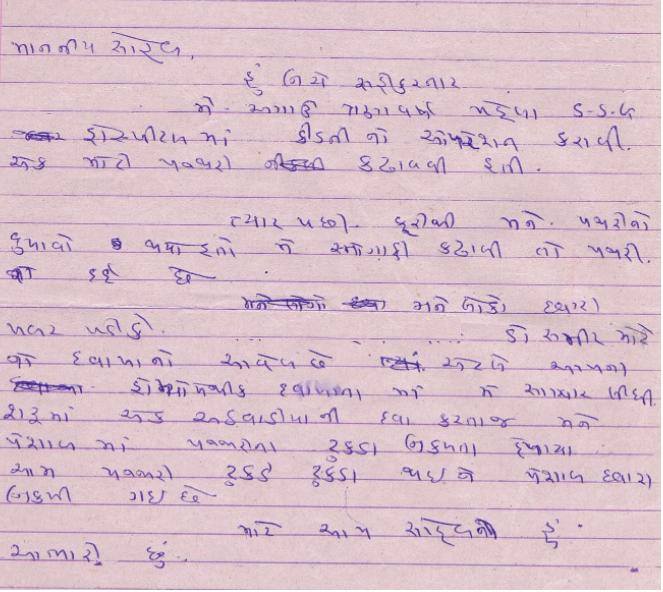 માનનીય સાહેબ,
હું નીચે સહીકરનાર
મે. અગાઉ ત્રણવર્ષ પહેલા S.S.G
હોસ્પીટલ માં કીડની નો ઓપરેશન કરાવી.
એક મોટી પથ્થરી કઢાવવી હતી.
ત્યાર પછી. ફરીથી મને. પથરીનો
દુખાવો થયો હતો મેં અગાઉ કઢાવી તો પથરી.
દર્દ છે
મને લોકો દ્વારા
ખબર પડીકે. ડો સમીર
નો દવાખાનો આવેલ છે એટલે આપના
હોમ્યોપેથીક દવાખાના માં મેં સારવાર લીધી
શરૂમાં એક અઠવાડીયા ની દવા કરતાજ મને
પેશાબ માં પથ્થરીના ટુકડા નિકળતા દેખાયા
આમ પથ્થરી ટુકડે ટુકડા થઇ ને પેશાબ દ્વારા
નિકળી ગઇ છે
માટે આપ સાહેબનો હું
આભારી છું.